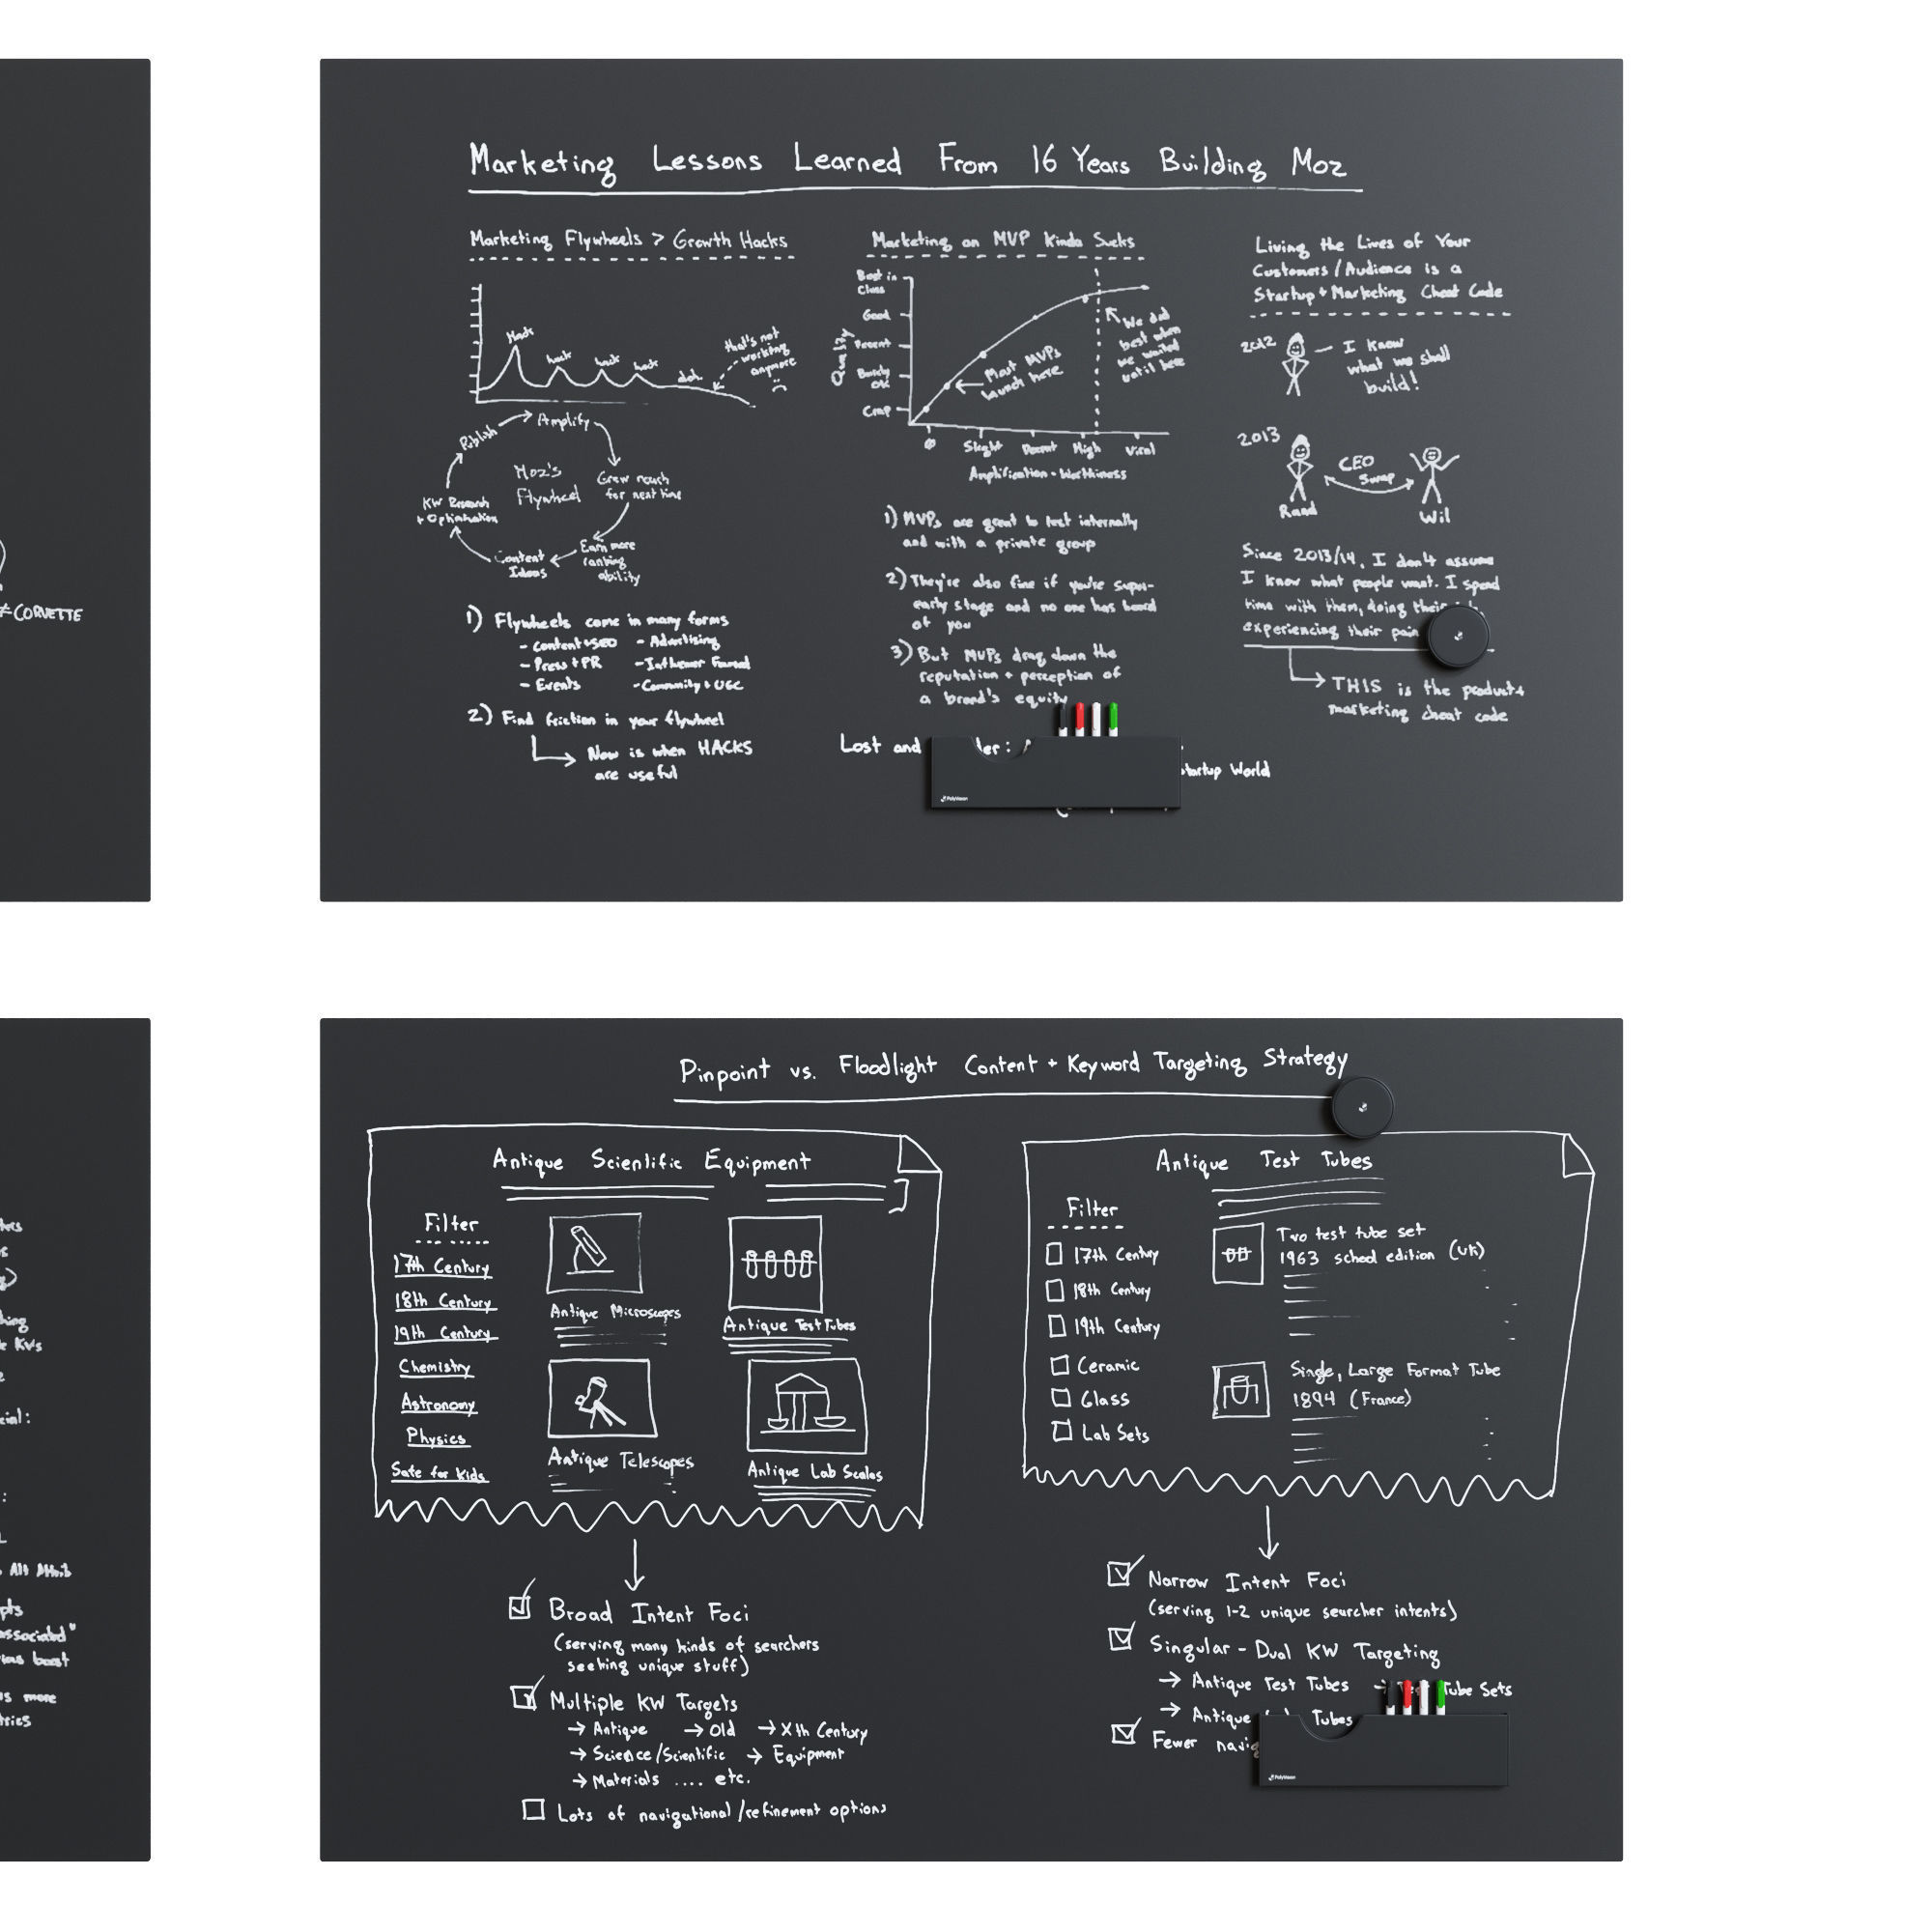 ≠ CORVETTE
Marketing Lessons Learned From 16 Years Building Moz
Marketing Flywheels > Growth Hacks
Hack
hack
hack
hack
doh
that's not
working
anymore
Publish
Amplify
Grow reach
for next time
Earn more
ranking
ability
Content
Ideas
KW Research
+ Optimization
Moz's
Flywheel
1) Flywheels come in many forms
- Content+SEO - Advertising
- Press + PR - Influencer Focused
- Events - Community + UGC
2) Find friction in your flywheel
Now is when HACKS
are useful
Marketing an MVP Kinda Sucks
Quality
Best in
Class
Good
Decent
Barely
OK
Crap
Most MVPs
launch here
We did
best when
we waited
until here
Ø Slight Decent High Viral
Amplification-Worthiness
1) MVPs are great to test internally
and with a private group
2) They're also fine if you're super-
early stage and no one has heard
of you
3) But MVPs drag down the
reputation + perception of
a brand's equity
Lost and
Startup World
PolyVision
Living the Lives of Your
Customers/Audience is a
Startup + Marketing Cheat Code
2012
I know
what we shall
build!
2013
CEO
Swap
Rand Wil
Since 2013/14, I don't assume
I know what people want. I spend
time with them, doing their
experiencing their pain
THIS is the product+
marketing cheat code
KVs
All
associated"
boost
more
Pinpoint vs. Floodlight Content + Keyword Targeting Strategy
Antique Scientific Equipment
Filter
17th Century
18th Century
19th Century
Chemistry
Astronomy
Physics
Safe for Kids
Antique Microscopes
Antique Test Tubes
Antique Telescopes
Antique Lab Scales
Broad Intent Foci
(serving many kinds of searchers
seeking unique stuff)
Multiple KW Targets
→ Antique → Old → Xth Century
→ Science/Scientific → Equipment
→ Materials .... etc.
Lots of navigational/refinement options
Antique Test Tubes
Filter
17th Century
18th Century
19th Century
Ceramic
Glass
Lab Sets
Two test tube set
1963 school edition (UK)
Single, Large Format Tube
1894 (France)
Narrow Intent Foci
(serving 1-2 unique searcher intents)
Singular-Dual KW Targeting
→ Antique Test Tubes → Tube Sets
→ Antique Tubes
Fewer
PolyVision